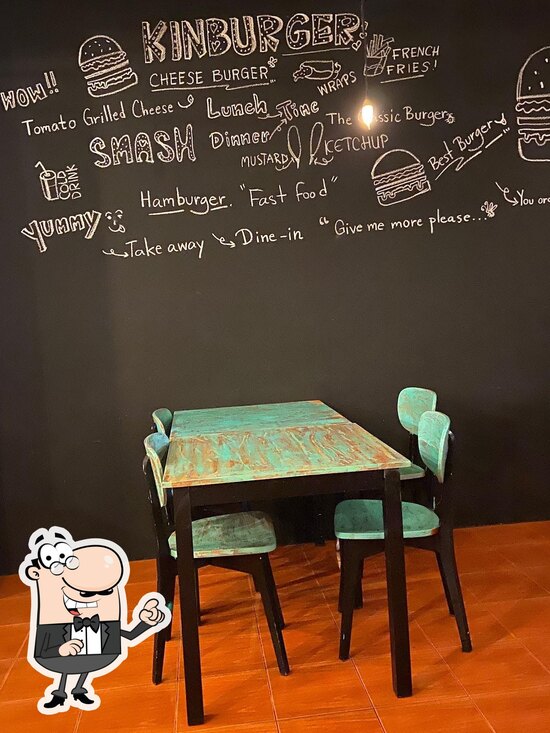 KINBURGER!
WOW!!
CHEESE BURGER
WRAPS
FRENCH
FRIES!
Tomato Grilled Cheese
Lunch Time
Dinner
The Classic Burger
SMASH
MUSTARD
KETCHUP
Best Burger
COLD
DRINK
Hamburger. "Fast food"
YUMMY
Take away
Dine-in
"Give me more please...
You are